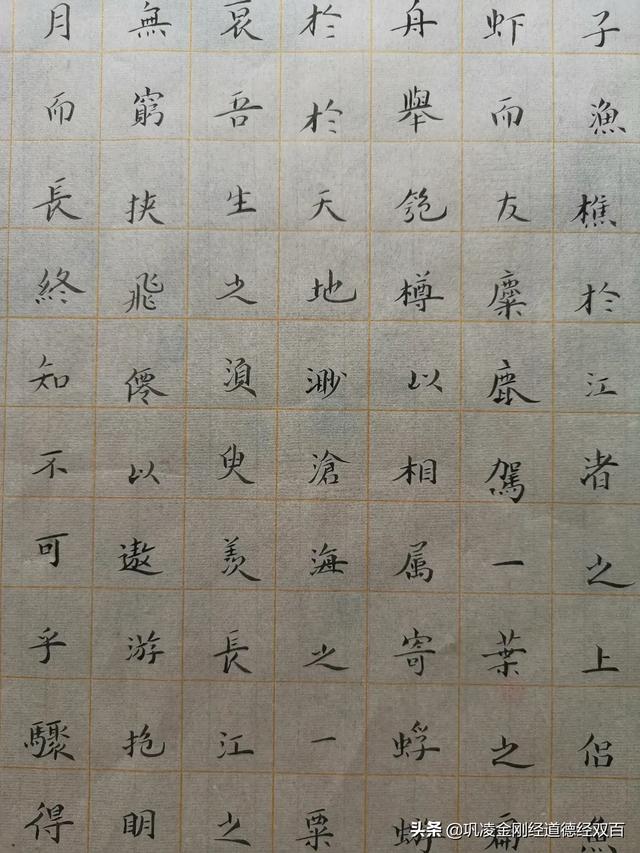 子漁樵於江渚之上侣魚
虾而友麋鹿駕一葉之扁
舟舉匏樽以相属寄蜉蝣
於於天地渺滄海之一粟
哀吾生之須臾羨長江之
無窮挟飛僊以遨游抱明
月而長終知不可乎驟得
头条 @巩凌金刚经道德经双百